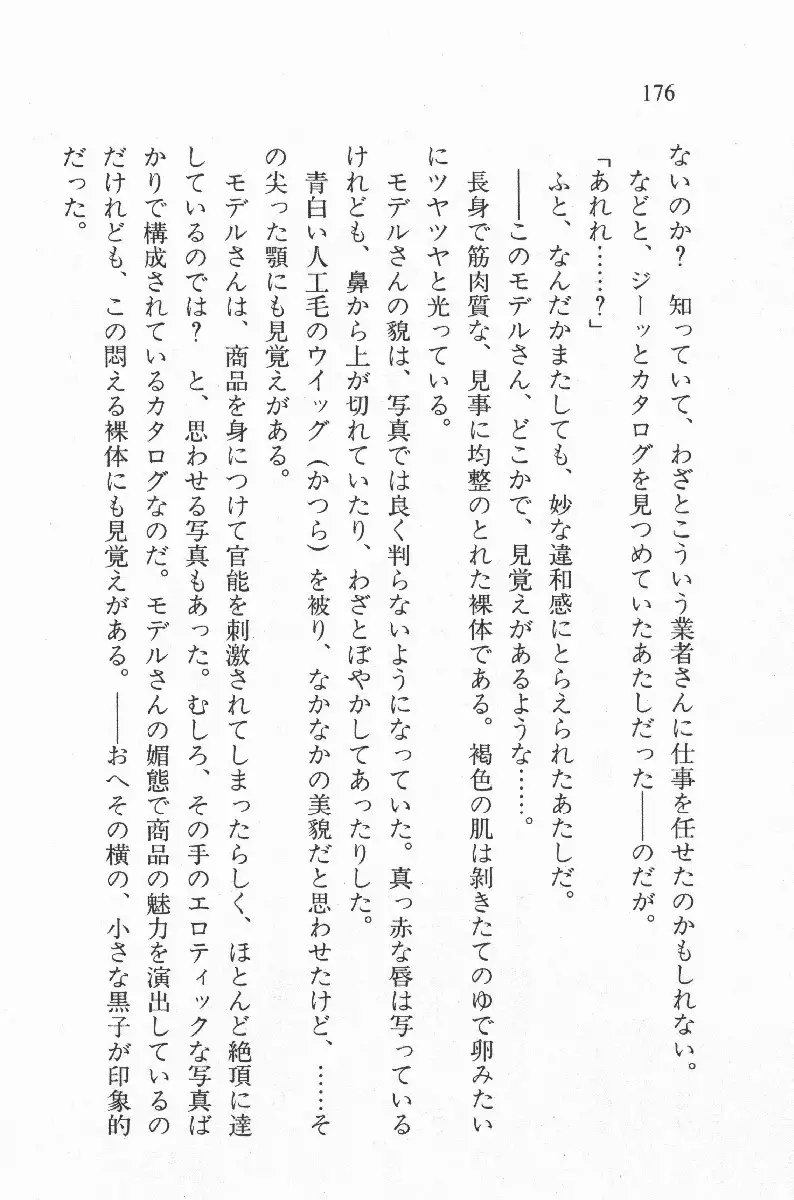 176
ないのか？　知っていて、わざとこういう業者さんに仕事を任せたのかもしれない。
　などと、ジーッとカタログを見つめていたあたしだった――のだが。
「あれれ……？」
　ふと、なんだかまたしても、妙な違和感にとらえられたあたしだ。
　――このモデルさん、どこかで、見覚えがあるような……。
　長身で筋肉質な、見事に均整のとれた裸体である。褐色の肌は剝きたてのゆで卵みたい
にツヤツヤと光っている。
　モデルさんの貌は、写真では良く判らないようになっていた。真っ赤な唇は写っている
けれども、鼻から上が切れていたり、わざとぼやかしてあったりした。
　青白い人工毛のウイッグ（かつら）を被り、なかなかの美貌だと思わせたけど、……そ
の尖った顎にも見覚えがある。
　モデルさんは、商品を身につけて官能を刺激されてしまったらしく、ほとんど絶頂に達
しているのでは？　と、思わせる写真もあった。むしろ、その手のエロティックな写真ば
かりで構成されているカタログなのだ。モデルさんの媚態で商品の魅力を演出しているの
だけれども、この悶える裸体にも見覚えがある。――おへその横の、小さな黒子が印象的
だった。